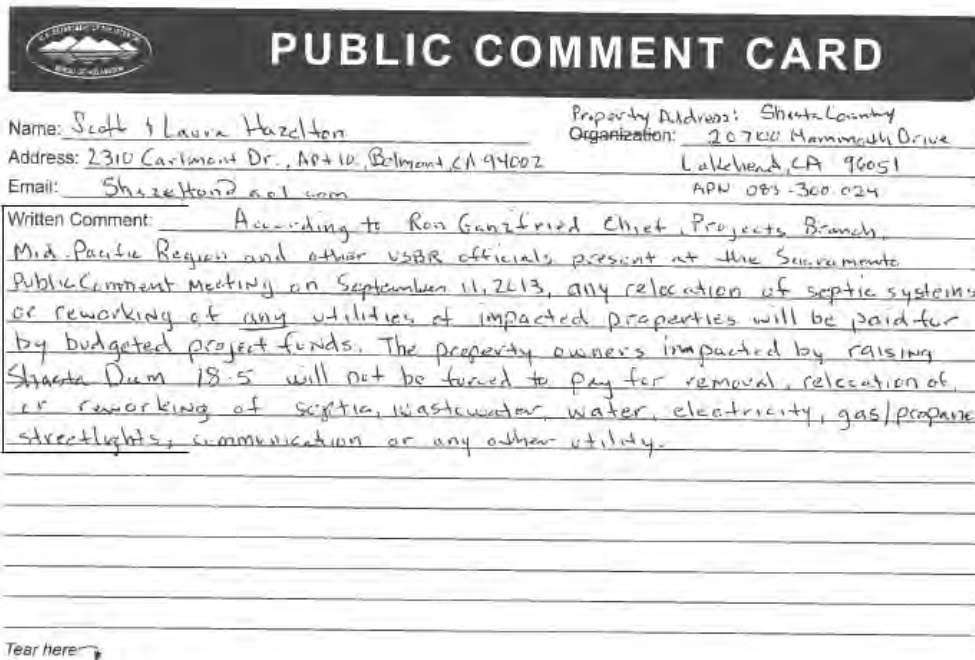 U.S. DEPARTMENT OF THE INTERIOR
BUREAU OF RECLAMATION
PUBLIC COMMENT CARD
Name: Scott & Laura Hazelton
Property Address: Shasta County
Organization: 20700 Mammouth Drive
Address: 2310 Carlmont Dr., Apt 10, Belmont, CA 94002
Lakehead, CA 96051
Email: Shazelton@aol.com
APN 083-300-024
Written Comment: According to Ron Ganzfried Chief, Projects Branch,
Mid-Pacific Region and other USBR officials present at the Sacramento
Public Comment Meeting on September 11, 2013, any relocation of septic systems
or reworking of any utilities of impacted properties will be paid for
by budgeted project funds. The property owners impacted by raising
Shasta Dam 18.5 will not be forced to pay for removal, relocation of,
or reworking of septic, wastewater, water, electricity, gas/propane
streetlights, communication or any other utility.
Tear here